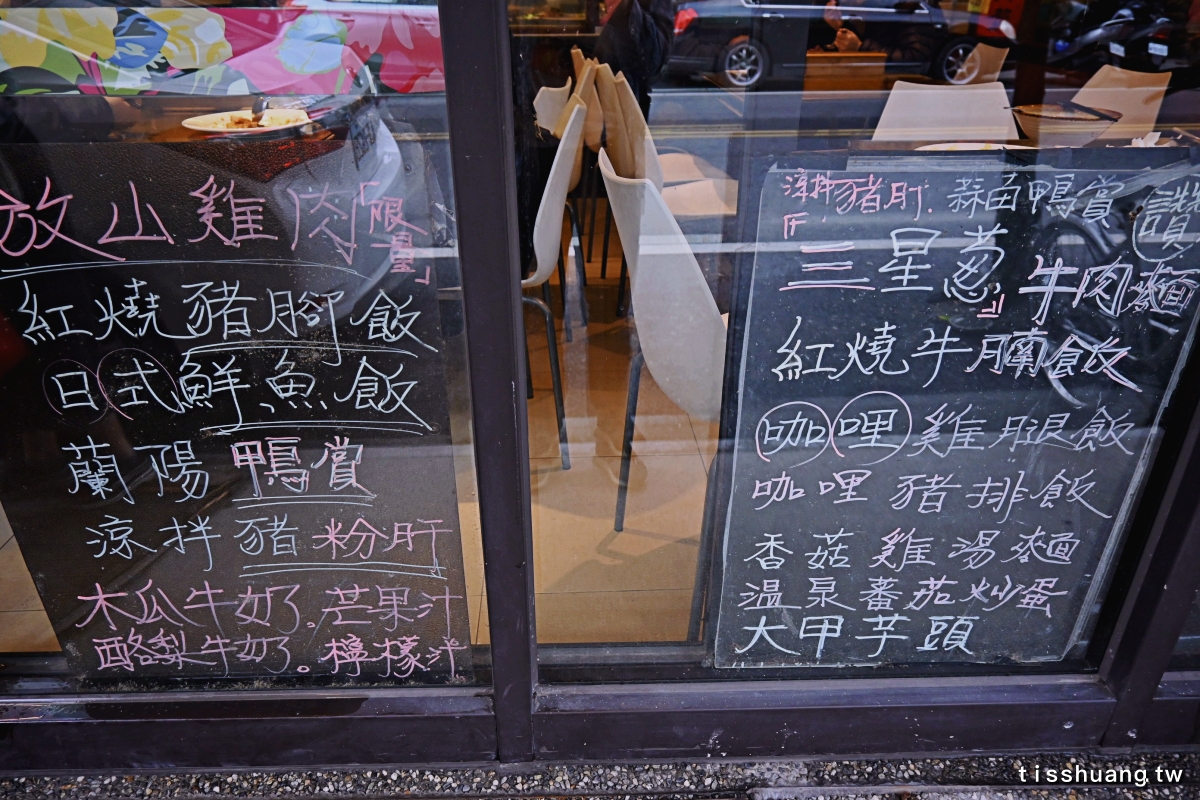 放山雞肉「限量」
紅燒豬腳飯
日式鮮魚飯
蘭陽鴨賞
涼拌豬粉肝
木瓜牛奶.芒果汁
酪梨牛奶。檸檬汁
涼拌豬肝.蒜苗鴨賞 讚
『三星葱』牛肉麵
紅燒牛腩飯
咖哩雞腿飯
咖哩豬排飯
香菇雞湯麵
溫泉蕃茄炒蛋
大甲芋頭
tisshuang.tw